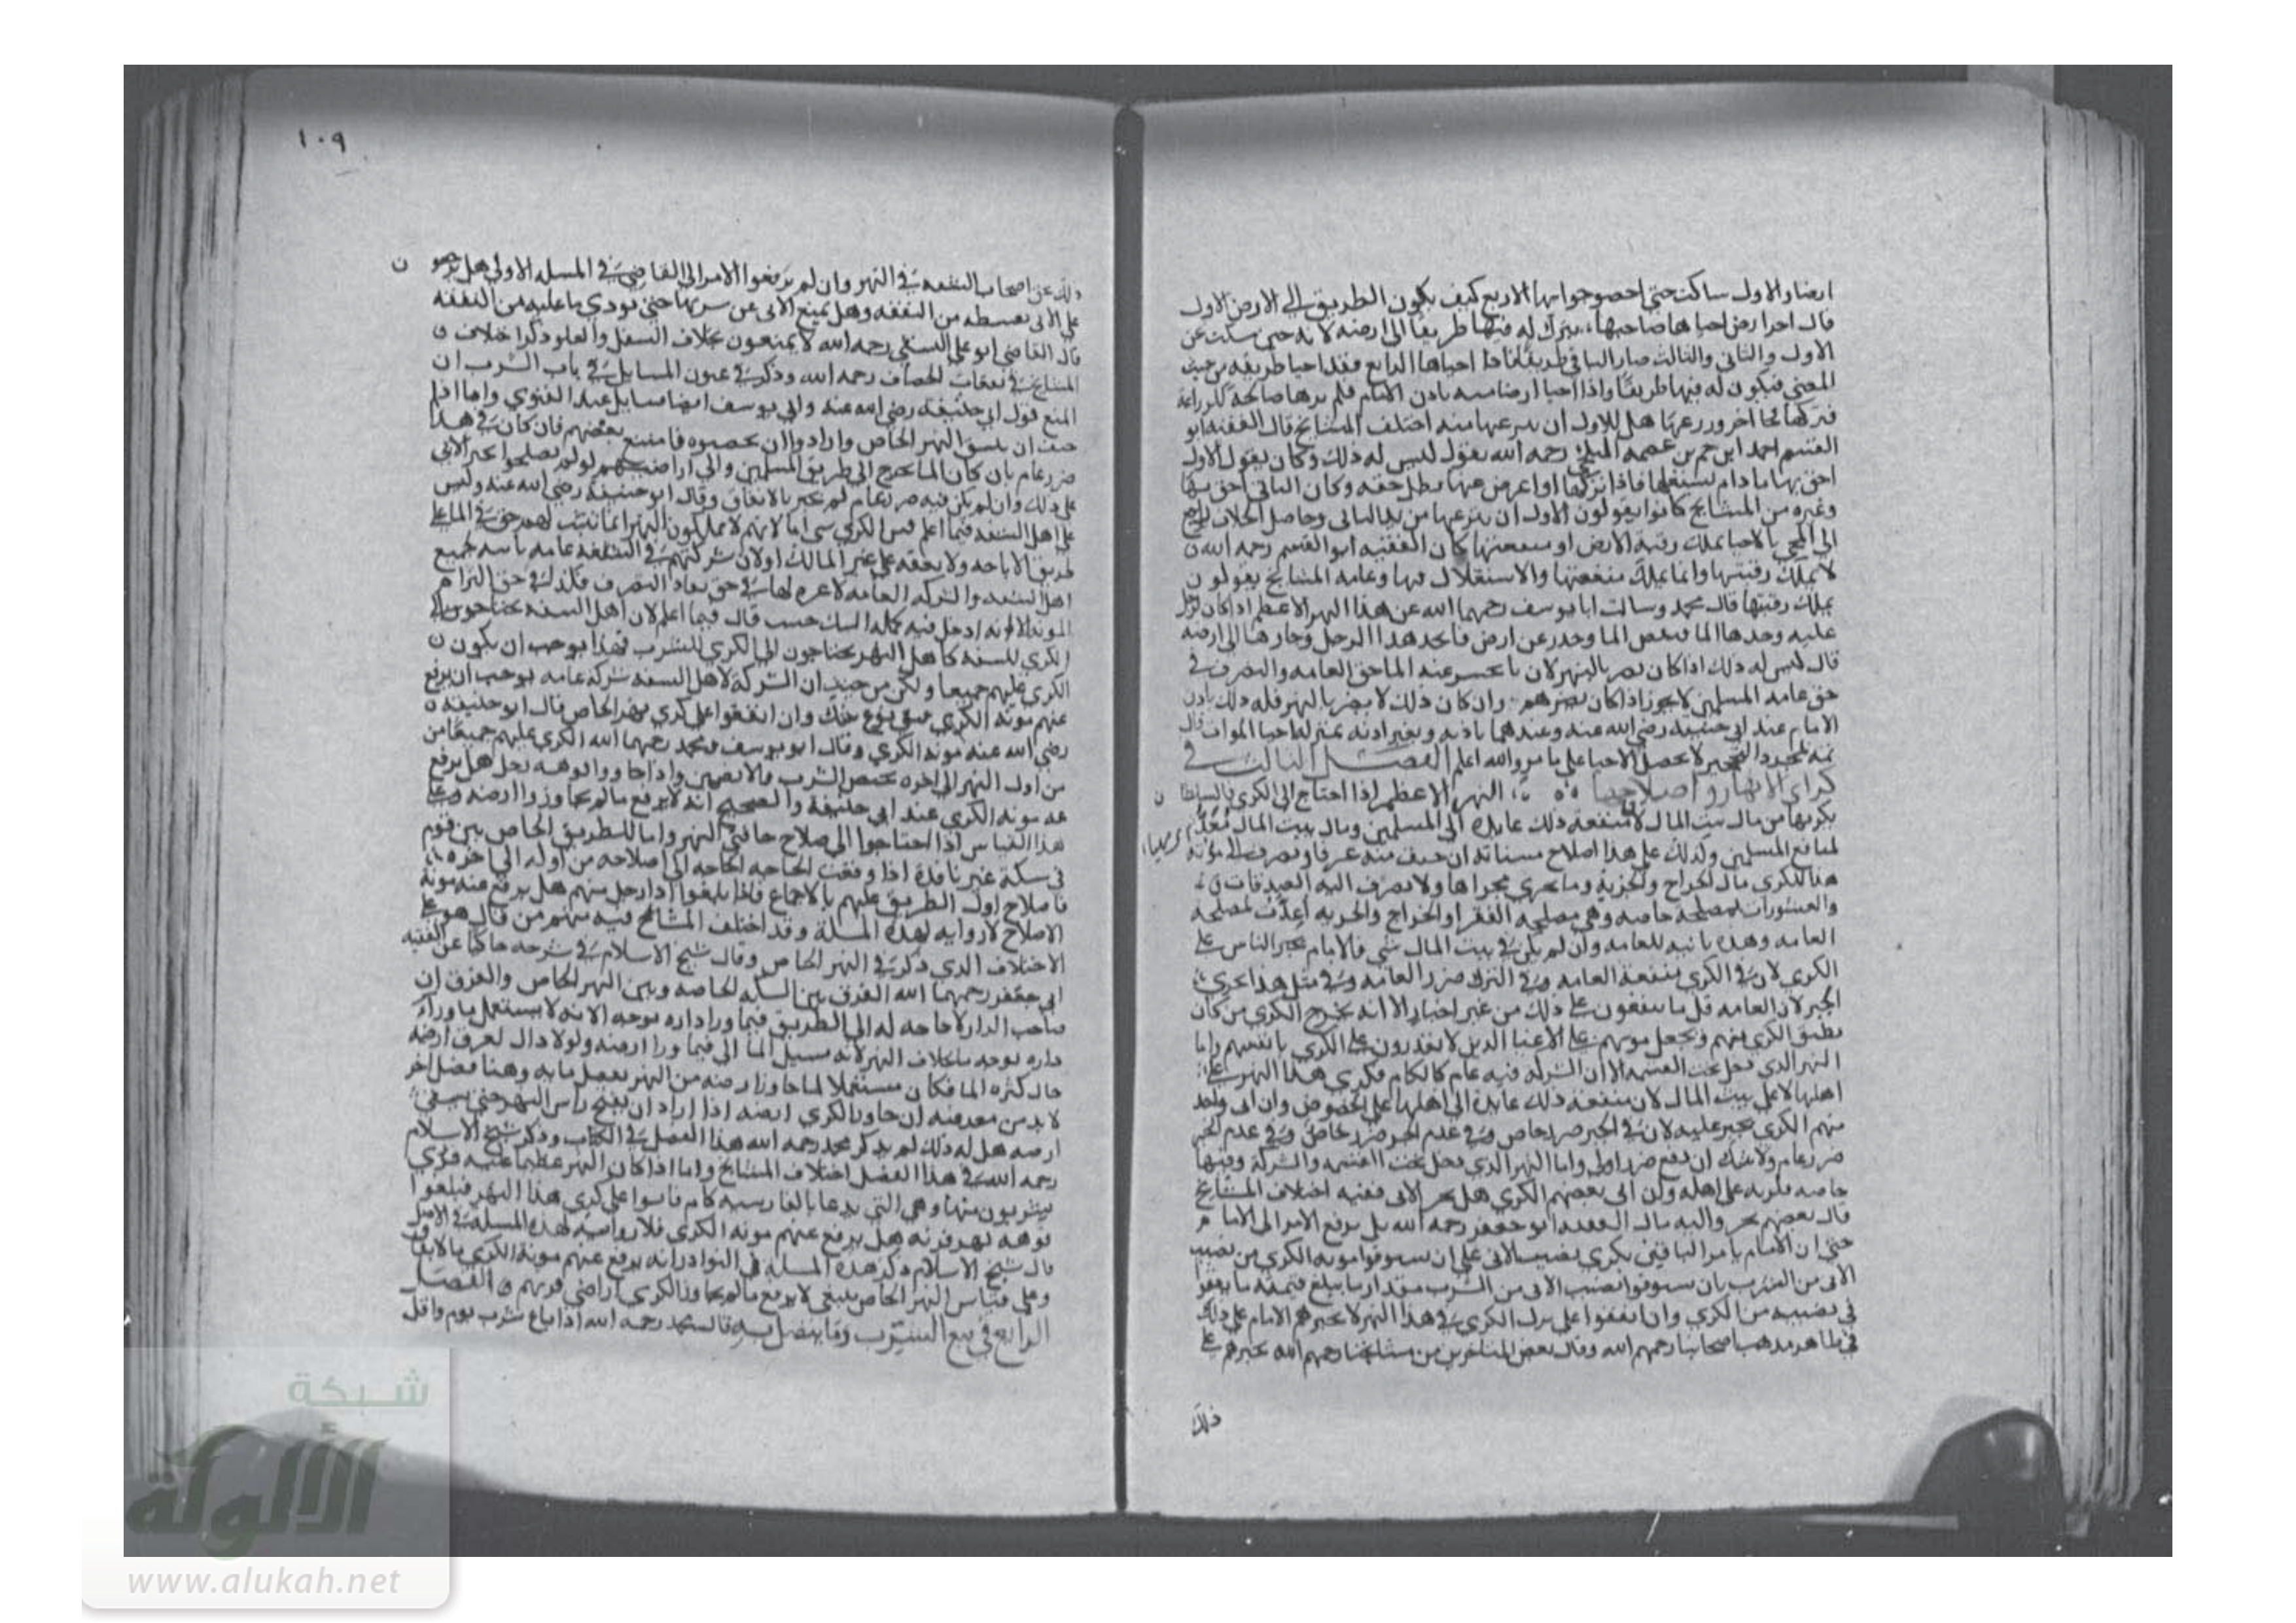 ارضا والاول ساكت حتى احصوا جوانبها الاربع كيف يكون الطريق الى الارض الاول
قال احرا رض احياها صاحبها يترك له فيها طريقا الى ارضه لانه حين سكت عن
الاول والثاني والثالث صار الباقي طريقا فاذا احياها الرابع فقد احيا طريقه من حيث
المعنى فيكون له فيها طريقا واذا احيا ارضا ميتة باذن الامام فلم يرها صالحة للزراعة
فتركها فجا اخر وزرعها هل للاول ان ينزعها منه اختلف المشايخ قال الفقيه ابو
القسم احمد ابن حم بن عصمه البلخي رحمه الله يقول ليس له ذلك وكان يقول الاول
احق بها ما دام يستغلها فاذا تركها او اعرض عنها بطل حقه وكان الثاني احق بها
وغيره من المشايخ كانوا يقولون الاول ان ينزعها من يد الثاني وحاصل الخلاف راجع
الى المحي بالاحيا يملك رقبة الارض او منفعتها كان الفقيه ابو القسم رحمه الله
لا يملك رقبتها وانما يملك منفعتها والاستغلال فيها وعامة المشايخ يقولون
يملك رقبتها قال محمد وسالت ابا يوسف رحمهما الله عن هذا النهر الاعظم اذا كان لرجل
عليه وحدها الما فنقص الما وجزر عن ارض فاتخذ هذا الرجل وجارها الى ارضه
قال ليس له ذلك اذا كان يضر بالنهر لان ما ينحسر عنه الما حق العامه والتصرف في
حق عامة المسلمين لا يجوز اذا كان يضرهم وان كان ذلك لا يضر بالنهر فله ذلك باذن
الامام عند ابي حنيفة رضي الله عنه وعندهما باذنه وبغير اذنه بمنزلة احيا الموات قال
ثمة التحجير لا يحصل الاحيا على ما مر والله اعلم الفصل الثالث في
كراي الانهار واصلاحها النهر الاعظم اذا احتاج الى الكري فالسلطا ن
يكريها من مال بيت المال لان منفعة ذلك عايدة الى المسلمين ومال بيت المال مُعَدّ
لمنافع المسلمين وكذلك على هذا اصلاح مسناته ان خيف منه غرقا ويصرف الى مؤنة
هذا الكري مال الخراج والجزية وما يجري مجراها ولا يصرف اليه الصدقات
والعشورات لمصلحة خاصه وهي مصلحه الفقرا والخراج والجزيه اعدت لمصلحة
العامه وهذه نايبه للعامه وان لم يكن في بيت المال شي فالامام يجبر الناس على
الكري لان في الكري منفعة العامه وفي الترك ضرر العامه وفي مثل هذا يجري
الجبر لان العامه قل ما ينفقون على ذلك من غير اجبار الا انه يخرج الكري من كان
يطيق الكري منهم ويجعل مونتهم على الاغنيا الذين لا يقدرون على الكري بانفسهم واما
النهر الذي دخل تحت القسمه الا ان الشركه فيه عام كالكام فكري هذا النهر على
اهلها لا على بيت المال لان منفعة ذلك عايدة الى اهلها على الخصوص وان ابى واحد
منهم الكري يجبر عليه لان في الجبر ضرر خاص وفي عدم الجبر ضرر خاص وفي عدم الجبر
ضرر عام ولا شك ان دفع ضرر اولى واما النهر الذي دخل تحت القسمه والشركة وفيها
خاصه فكريه على اهله وان ابى بعضهم الكري هل يجبر الابى ففيه اختلاف المشايخ
قال بعضهم يجبر واليه مال الفقيه ابو جعفر رحمه الله بل يرفع الامر الى الاما م
حتى ان الامام يامر الباقين بكري نصيب الابى على ان يستوفوا مونه الكري من نصيب
الابى من الشرب بان يستوفوا نصيب الابى من الشرب مقدار ما يبلغ قيمته ما ينفقوا
في نصيبه من الكري وان اتفقوا على ترك الكري في هذا النهر لا يجبرهم الامام على ذلك
في ظاهر مذهب اصحابنا رحمهم الله وقال بعض المتاخرين من مشايخنا رحمهم الله يجبرهم على
ذلك
١٠٩
ذلك عن اصحاب الشفعه في النهر وان لم يرفعوا الامر الى القاضي في المسله الاولى هل يرجعو ن
على الابى بقسطه من النفقه وهل يمنع الابى عن شربها حتى يودي ما عليه من النفقه
قال القاضي ابو علي النسفي رحمه الله لا يمنعون بخلاف السفل والعلو وذكر اختلاف
المشايخ في نفقات الخصاف رحمه الله وذكر في عيون المسايل في باب الشرب ان
المنع قول ابي حنيفة رضي الله عنه وابي يوسف ايضا مسايل عند الفتوى واما اذا
خيف ان ينبثق النهر الخاص وارادوا ان يحصنوه فامتنع بعضهم فان كان في هذا
ضرر عام بان كان الما يخرج الى طريق المسلمين والى اراضيهم لو لم يصلحوا يجبر الابى
على ذلك وان لم يكن فيه ضرر عام لم يجبر بالاتفاق وقال ابو حنيفة رضي الله عنه وليس
على اهل الشفه فيما اعلم من الكري شي اما لانهم لا يملكون النهر انما يثبت لهم حق في الما على
طريق الاباحه ولا نفقه على غير المالك او لان شركتهم في الشفه عامه ثابته لجميع
اهل الشفه والشركه العامه لا عبره لها في حق نفاذ التصرف فكذلك في حق التزام
المونه الا انه ادخل فيه كلمة الشك حيث قال فيما اعلم لان اهل الشفه يحتاجون الى
الكري للشفه كاهل النهر يحتاجون الى الكري للشرب فهذا يوجب ان يكون
الكري عليهم جميعا ولكن من حيث ان الشركة لاهل الشفه شركة عامه يوجب ان يرفع
عنهم مونه الكري فبقي نوع شك وان اتفقوا على كري نهر الخاص قال ابو حنيفة
رضي الله عنه مونه الكري وقال ابو يوسف ومحمد رحمهما الله الكري عليهم جميعا من
من اول النهر الى اخره بحصص الشرب والارضين واذا جاوزوا فوهة رجل هل يرفع
عنه مونه الكري عند ابي حنيفة والصحيح انه لا يرفع ما لم يجاوزوا ارضه وعلى
هذا القياس اذا احتاجوا الى اصلاح حافتي النهر واما الطريق الخاص بين قوم
في سكة غير نافذة اذا وقعت الحاجه الحاجه الى اصلاحه من اوله الى اخره
فاصلاح اول الطريق عليهم بالاجماع فاذا بلغوا دار رجل منهم هل يرفع عنه مونة
الاصلاح لا روايه لهذه المسلة وقد اختلف المشايخ فيه منهم من قال هو على
الاختلاف الذي ذكر في النهر الخاص وقال شيخ الاسلام في شرحه حاكيا عن الفقيه
ابي جعفر رحمهما الله الفرق بين السكه الخاصه وبين النهر الخاص والفرق ان
صاحب الدار لا حاجه له الى الطريق فيما ورا داره بوجه الا انه لا يستعمل ما وراء
داره بوجه ما بخلاف النهر لانه مسيل الما الى فيما ورا ارضه ولولا ذاك لغرق ارضه
حال كثره الما فكان مستعملا لما جاوز ارضه من النهر بفضل مايه وهنا فصل اخر
لا بد من معرفته ان جاوز الكري ارضه اذا اراد ان يفتح راس النهر حتى يسقي
ارضه هل له ذلك لم يذكر محمد رحمه الله هذا الفصل في الكتاب وذكر شيخ الاسلام
رحمه الله في هذا الفصل اختلاف المشايخ واما اذا كان النهر عظيما عليه قرى
يشربون منها وهي التي يدعا بالفارسيه كام فاتوا على كري هذا النهر فبلغوا
فوهه نهر قريه هل يرفع عنهم مونه الكري فلا روايه لهذه المسله في الاصل
قال شيخ الاسلام ذكر هذه المسله في النوادر انه يرفع عنهم مونة الكري بالاتفاق
وعلى قياس النهر الخاص ينبغي لا يرفع ما لم يجاوز الكري اراضي قريتهم الفصل
الرابع في بيع الشرب وما يتصل به قال محمد رحمه الله اذا باع شرب يوم واقل
شبكة
الألوكة
www.alukah.net